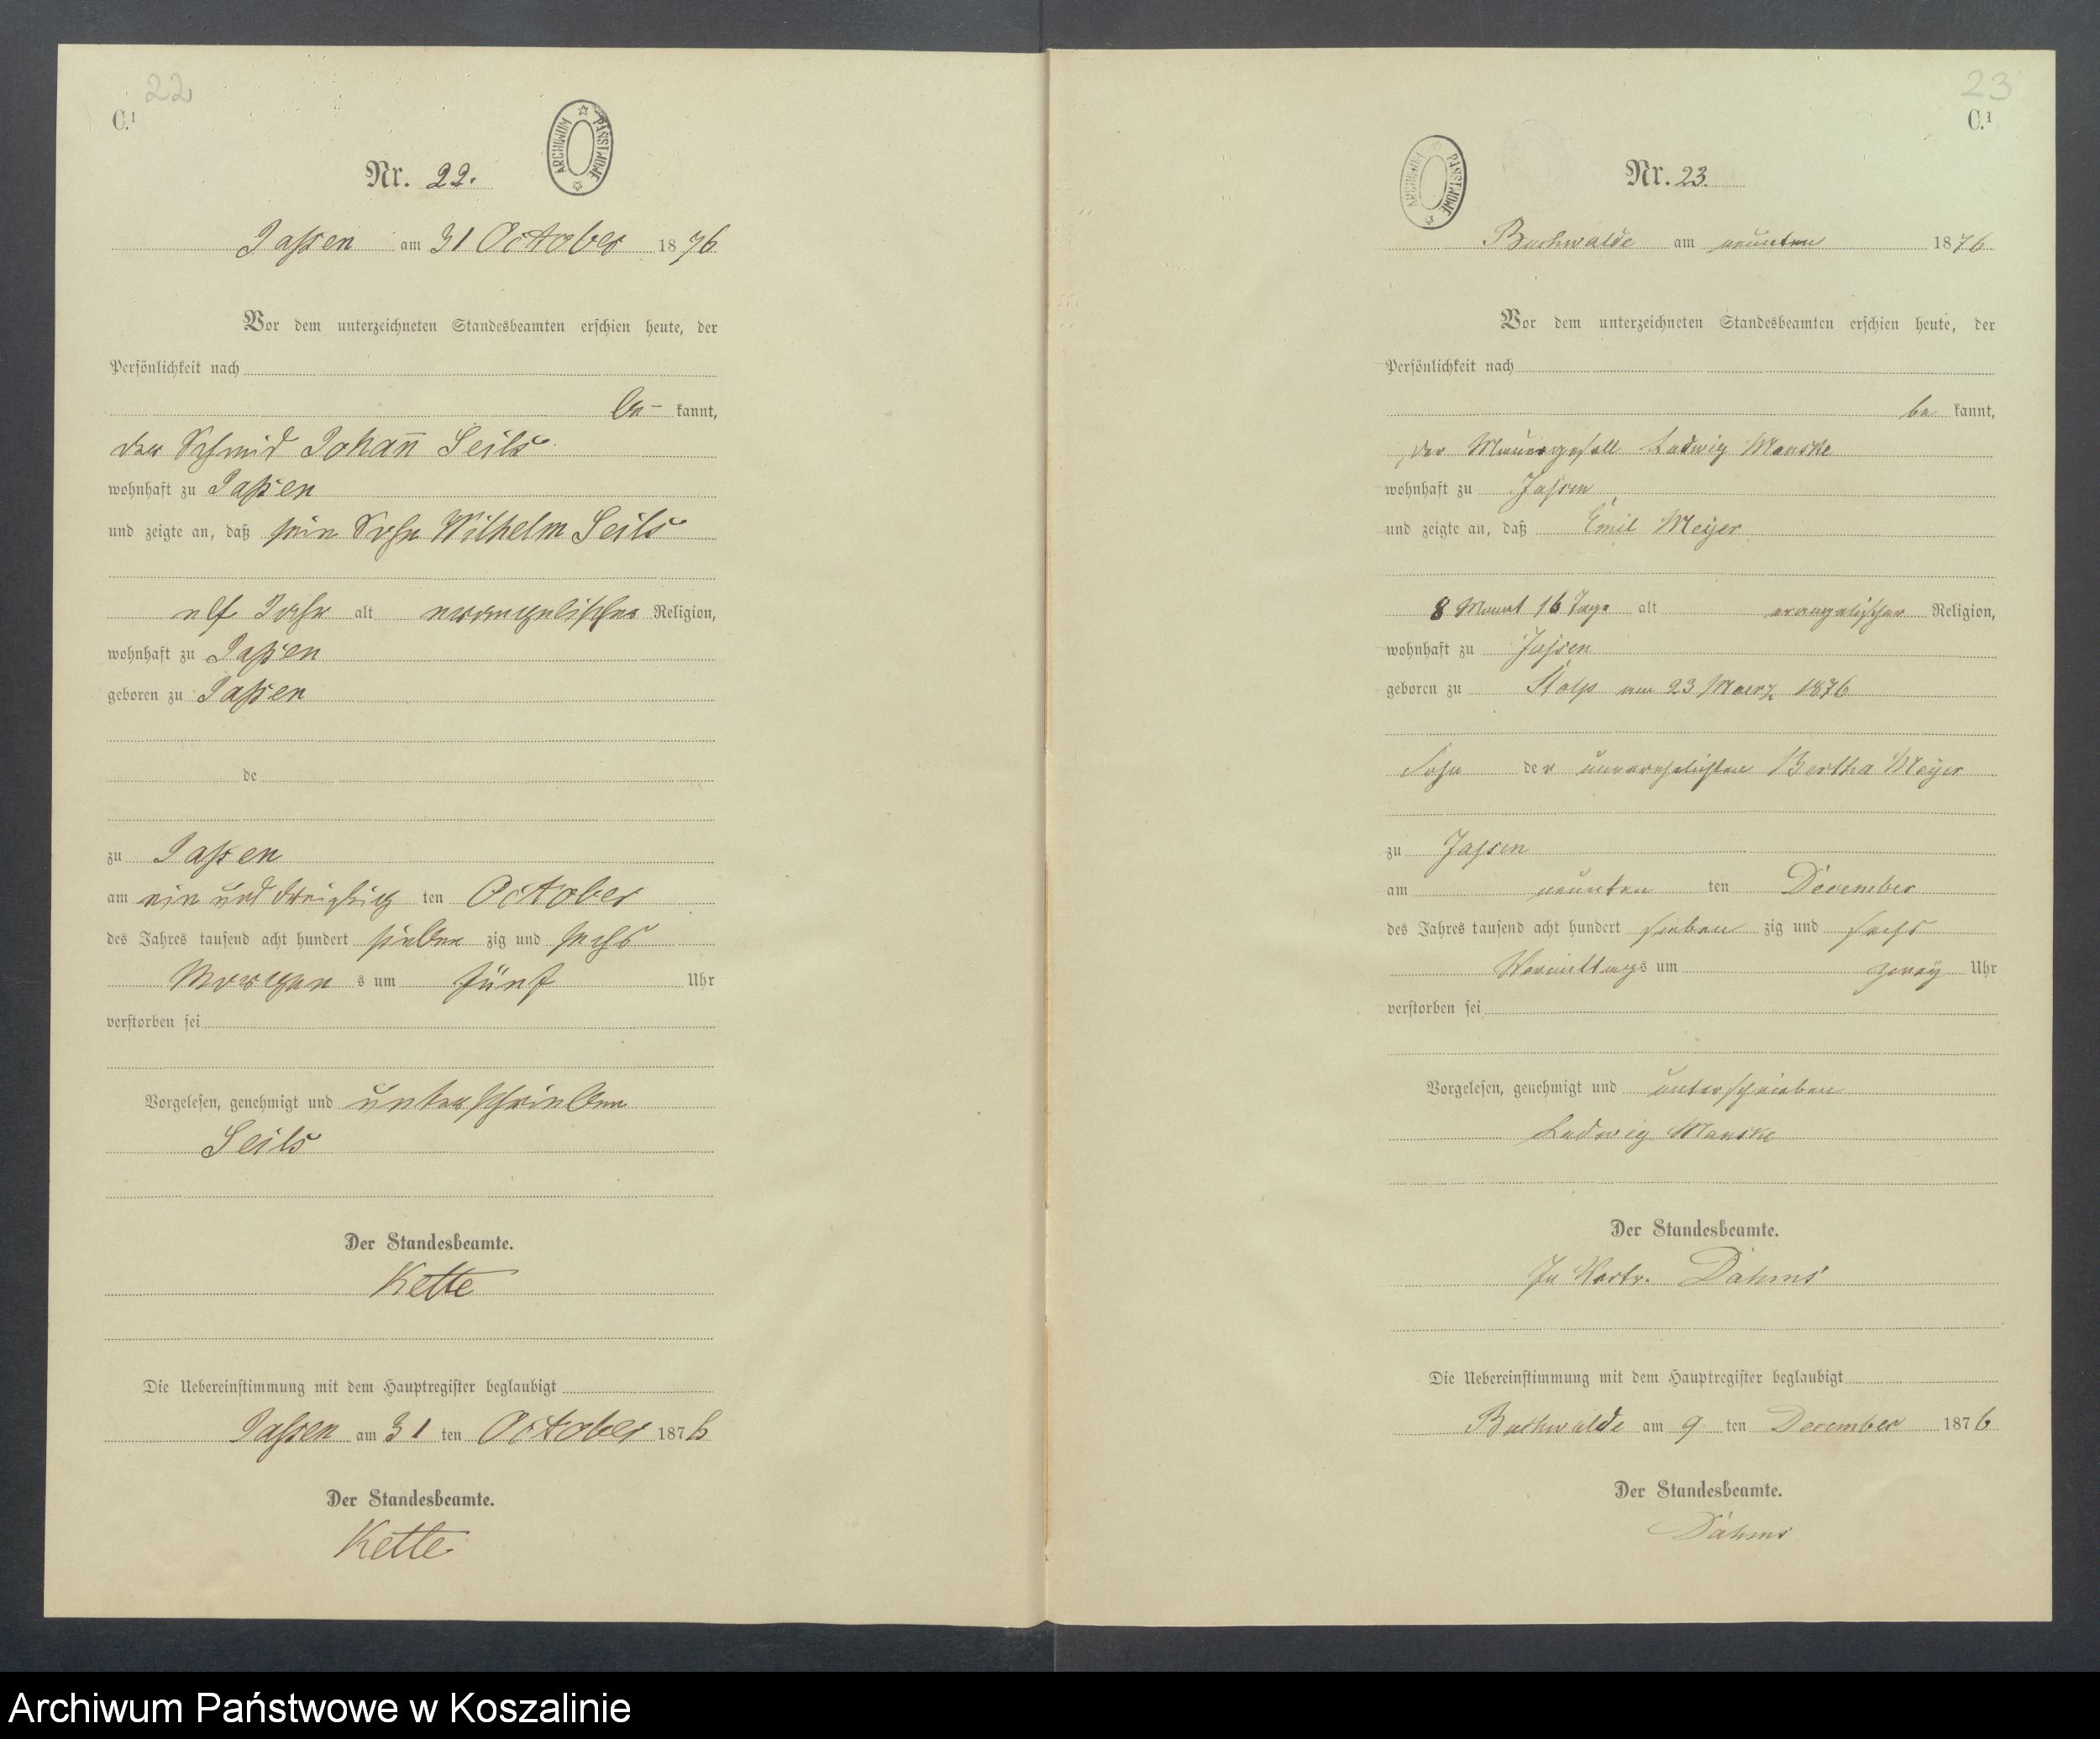 22
C.¹
ARCHIWUM PAŃSTWOWE
Nr. 22.
Jassen am 31 October 1876
Vor dem unterzeichneten Standesbeamten erschien heute, der
Persönlichkeit nach
be- kannt,
der Schmid Johan̅ Seils
wohnhaft zu Jassen
und zeigte an, daß sein Sohn Wilhelm Seils
elf Jahr alt evangelischer Religion,
wohnhaft zu Jassen
geboren zu Jassen
de
zu Jassen
am ein und dreißig ten October
des Jahres tausend acht hundert sieben zig und sechs
Morgen s um fünf Uhr
verstorben sei
Vorgelesen, genehmigt und unterschrieben
Seils
Der Standesbeamte.
Kette
Die Uebereinstimmung mit dem Hauptregister beglaubigt
Jassen am 31 ten October 1876
Der Standesbeamte.
Kette
23
C.¹
ARCHIWUM PAŃSTWOWE
Nr. 23.
Buchwalde am neunten 1876
Vor dem unterzeichneten Standesbeamten erschien heute, der
Persönlichkeit nach
be kannt,
der Mauergesell Ludwig Manske
wohnhaft zu Jassen
und zeigte an, daß Emil Meyer
8 Monat 16 Tage alt evangelischer Religion,
wohnhaft zu Jassen
geboren zu Stolp am 23 Maerz 1876
Sohn der unverehelichten Bertha Meyer
zu Jassen
am neunten ten December
des Jahres tausend acht hundert sieben zig und sechs
Vormittags um zwey Uhr
verstorben sei
Vorgelesen, genehmigt und unterschrieben
Ludwig Manske
Der Standesbeamte.
In Vertr. Dahms
Die Uebereinstimmung mit dem Hauptregister beglaubigt
Buchwalde am 9 ten December 1876
Der Standesbeamte.
Dahms
Archiwum Państwowe w Koszalinie